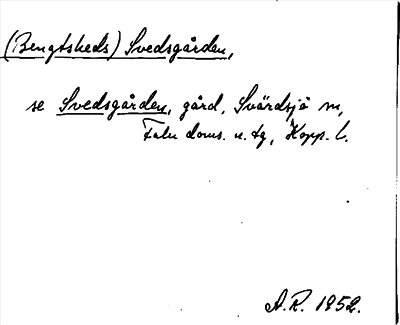 (Bengtsheds) Svedsgården,
se Svedsgården, gård, Svärdsjö sn,
Falu doms. o. tg, Kopp. l.
A.R. 1952.